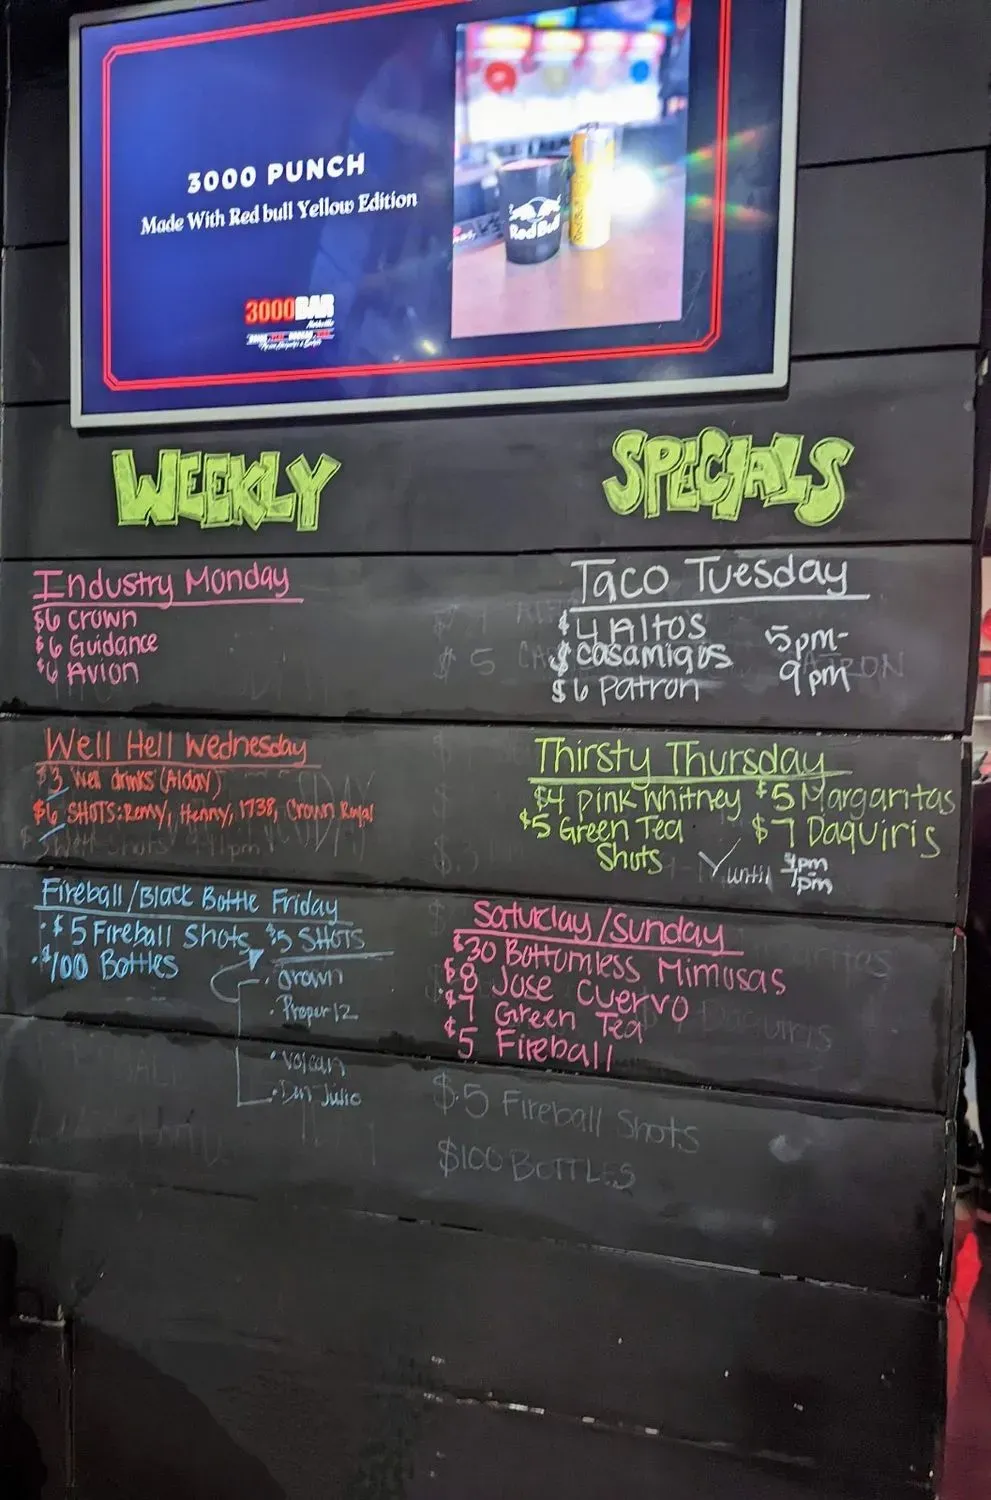 3000 PUNCH
Made With Red bull Yellow Edition
Red Bull
3000BAR
WEEKLY SPECIALS
Industry Monday
$6 Crown
$6 Guidance
$6 Avion
Taco Tuesday
$4 Altos
$ Casamigos
$6 Patron
5pm-
9pm
Well Hell Wednesday
$3 Well drinks (Alday)
$6 SHOTS: Remy, Henny, 1738, Crown Royal
Thirsty Thursday
$4 Pink Whitney $5 Margaritas
$5 Green Tea $7 Daquiris
Shots
until 4pm
7pm
Fireball/Black Bottle Friday
$5 Fireball Shots $5 SHOTS
$100 Bottles
Crown
Proper 12
Volcan
Don Julio
Saturday/Sunday
$30 Bottomless Mimosas
$8 Jose Cuervo
$7 Green Tea
$5 Fireball
$5 Fireball Shots
$100 BOTTLES